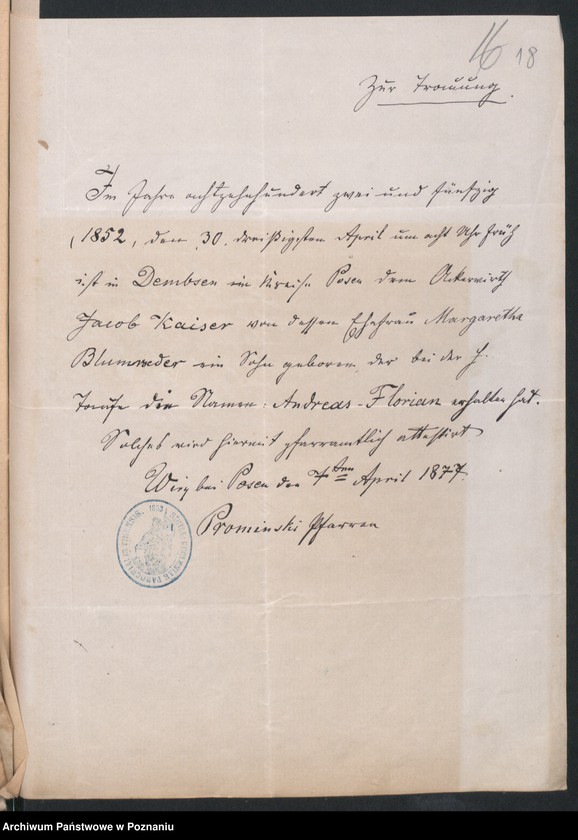 16 18
Zur Trauung.
Im Jahre achtzehnhundert zwei und fünfzig
(1852, den 30. dreißigsten April um acht Uhr früh
ist in Dembsen im Kreise Posen dem Ackerwirth
Jacob Kaiser von dessen Ehefrau Margaretha
Blumreder ein Sohn geboren, der bei der h.
Taufe die Namen: Andreas-Florian erhalten hat.
Solches wird hiermit pfarramtlich attestirt
bei Posen den 7ten April 1877.
Prominski Pfarrer
Archiwum Państwowe w Poznaniu